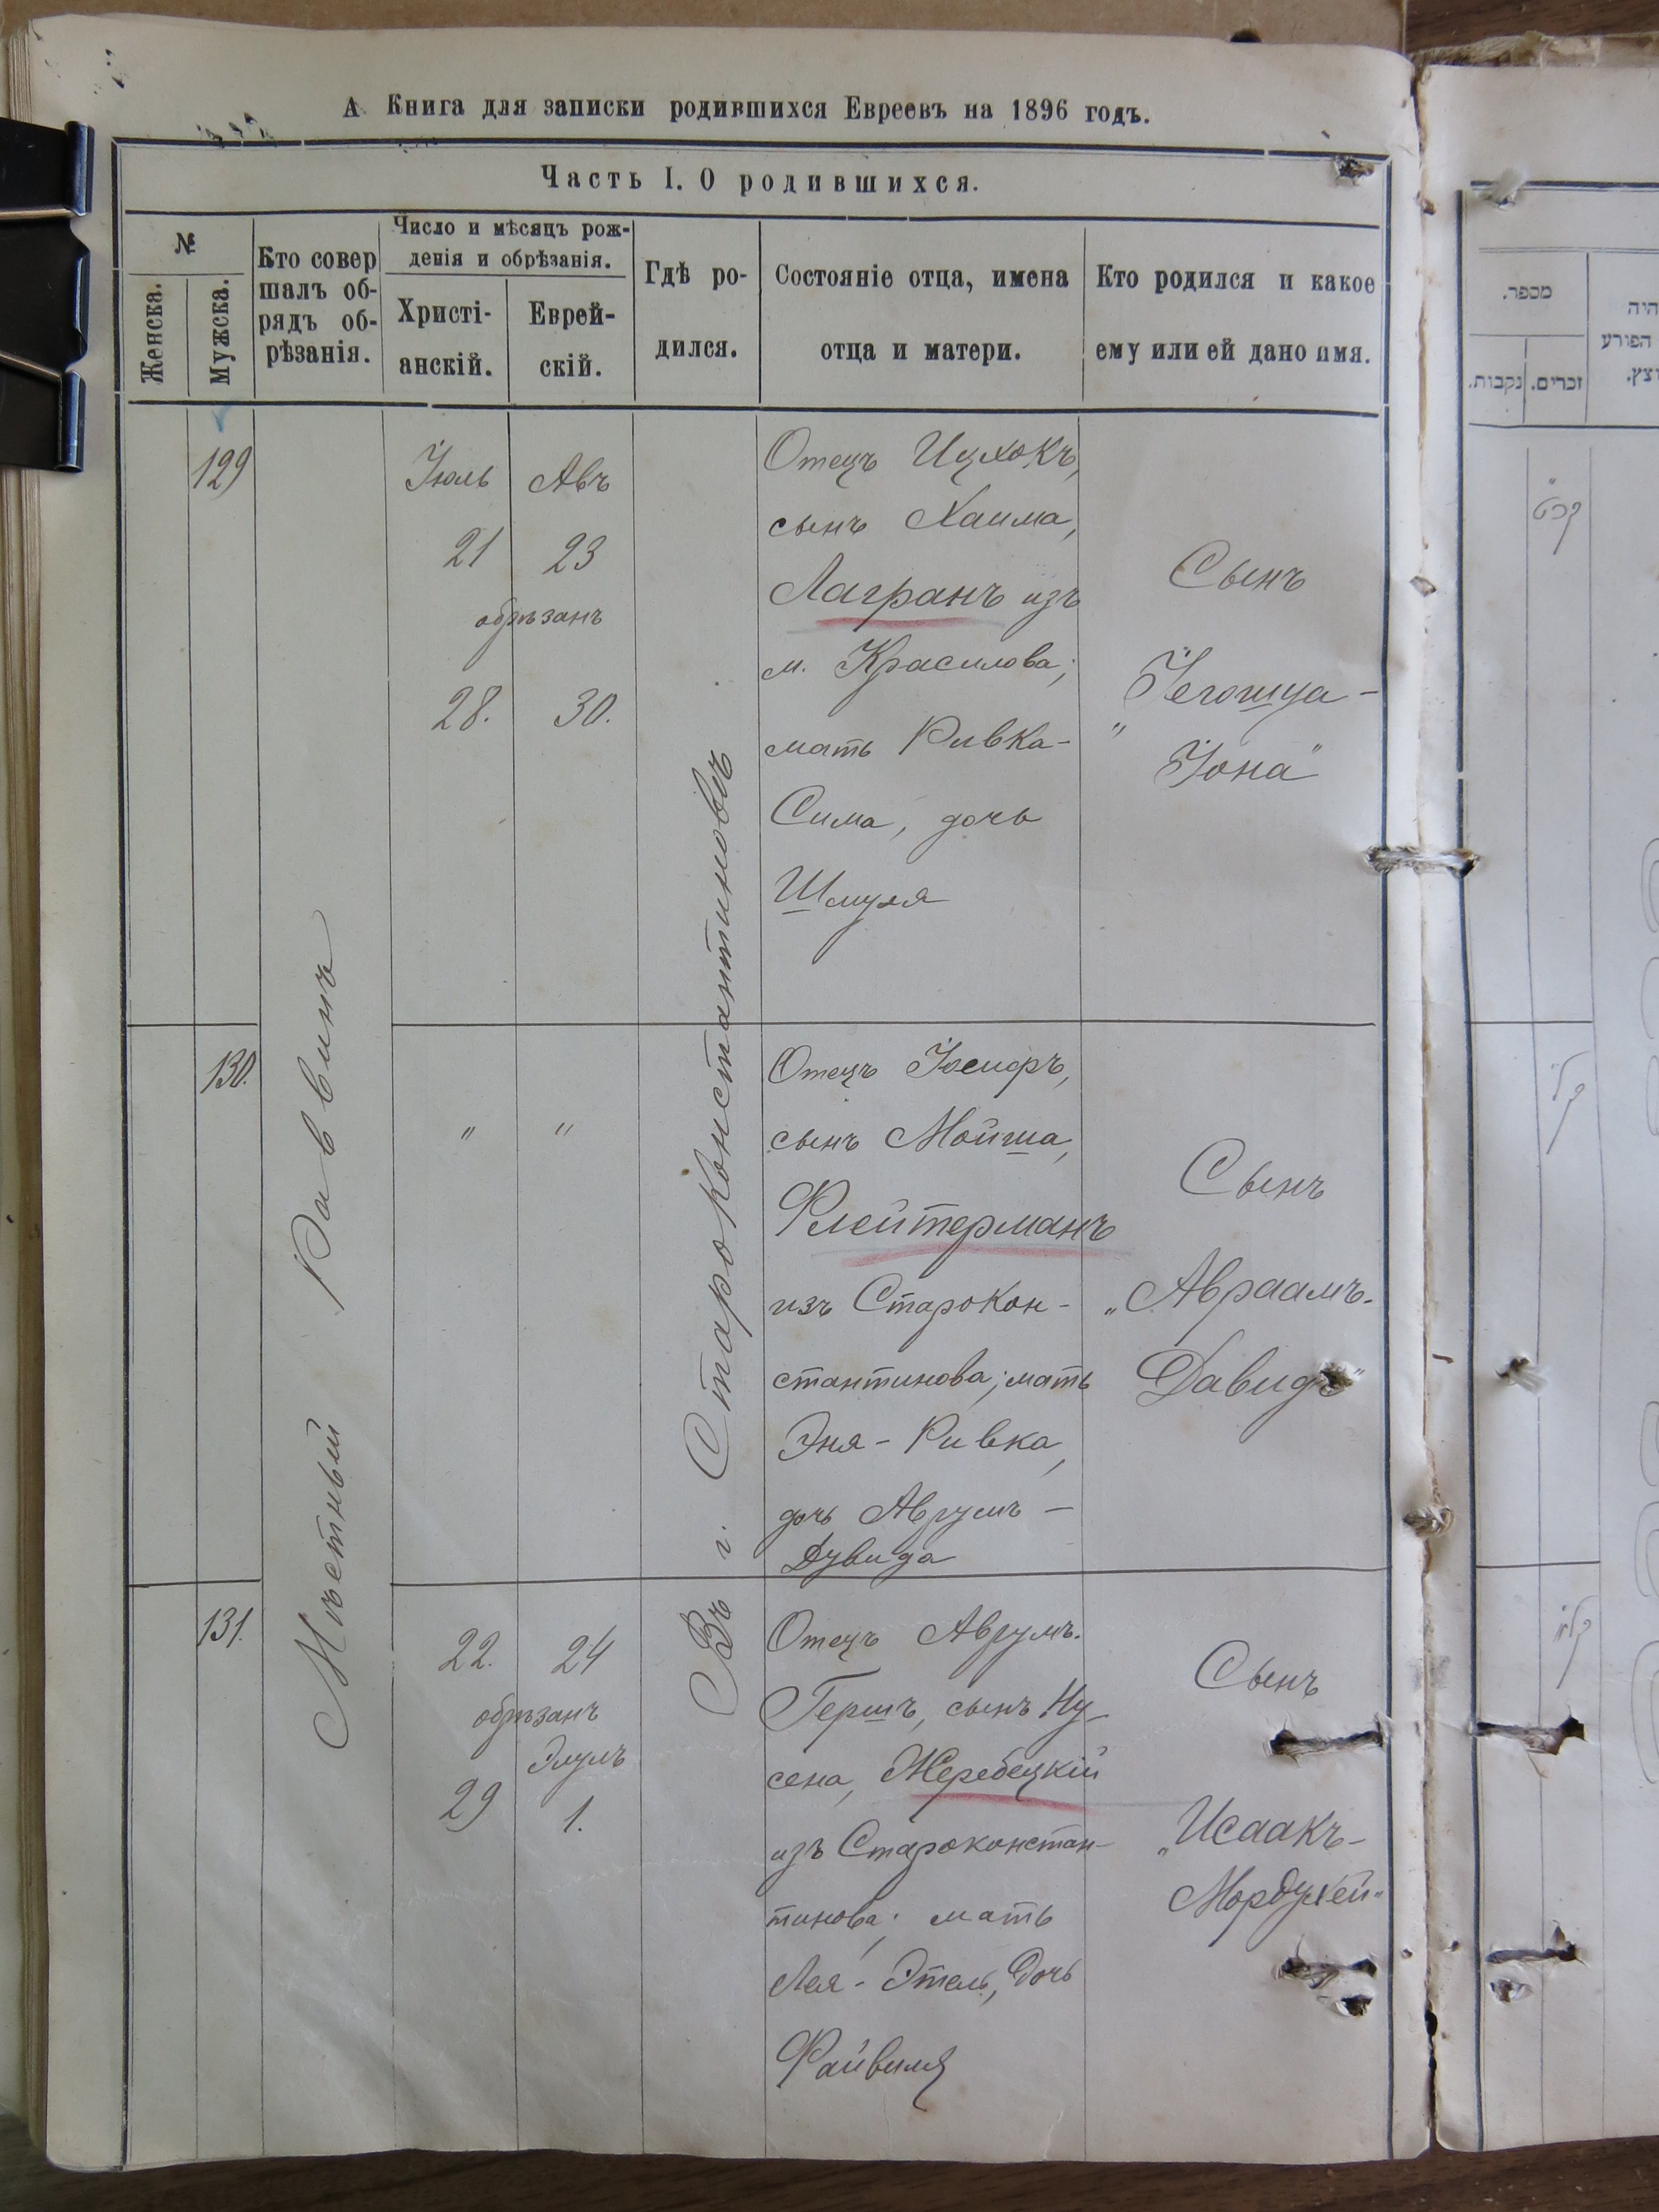 А Книга для записки родившихся Евреевъ на 1896 годъ.
Часть I. О родившихся.
№
Женска.
Мужска.
Кто совер
шалъ об-
рядъ об-
рѣзанія.
Число и мѣсяцъ рож-
денія и обрѣзанія.
Христі-
анскій.
Еврей-
скій.
Гдѣ ро-
дился.
Состояніе отца, имена
отца и матери.
Кто родился и какое
ему или ей дано имя.
Мѣстный Раввинъ
Въ г. Староконстантиновѣ
129
Іюль
Авъ
21
23
обрѣзанъ
28.
30.
Отецъ Ицхокъ,
сынъ Хаима,
Лагранъ изъ
м. Красилова;
мать Ривка-
Сима, дочь
Шмуля
Сынъ
„Іегошуа-
Іона"
130.
"
"
Отецъ Іосифъ,
сынъ Мойша,
Флейтерманъ
изъ Старокон-
стантинова; мать
Эня-Ривка,
дочь Аврумъ-
Дувида
Сынъ
„Авраамъ-
Давидъ"
131.
22.
24
обрѣзанъ
Элулъ
29
1.
Отецъ Аврумъ-
Гершъ, сынъ Ну-
сена, Жеребецкій
изъ Староконстан-
тинова; мать
Лея-Этель, дочь
Файвиля
Сынъ
„Исаакъ-
Мордухей"
מספר.
נקבות.
זכרים.
היה
הפורע
קכט
קל
קלא